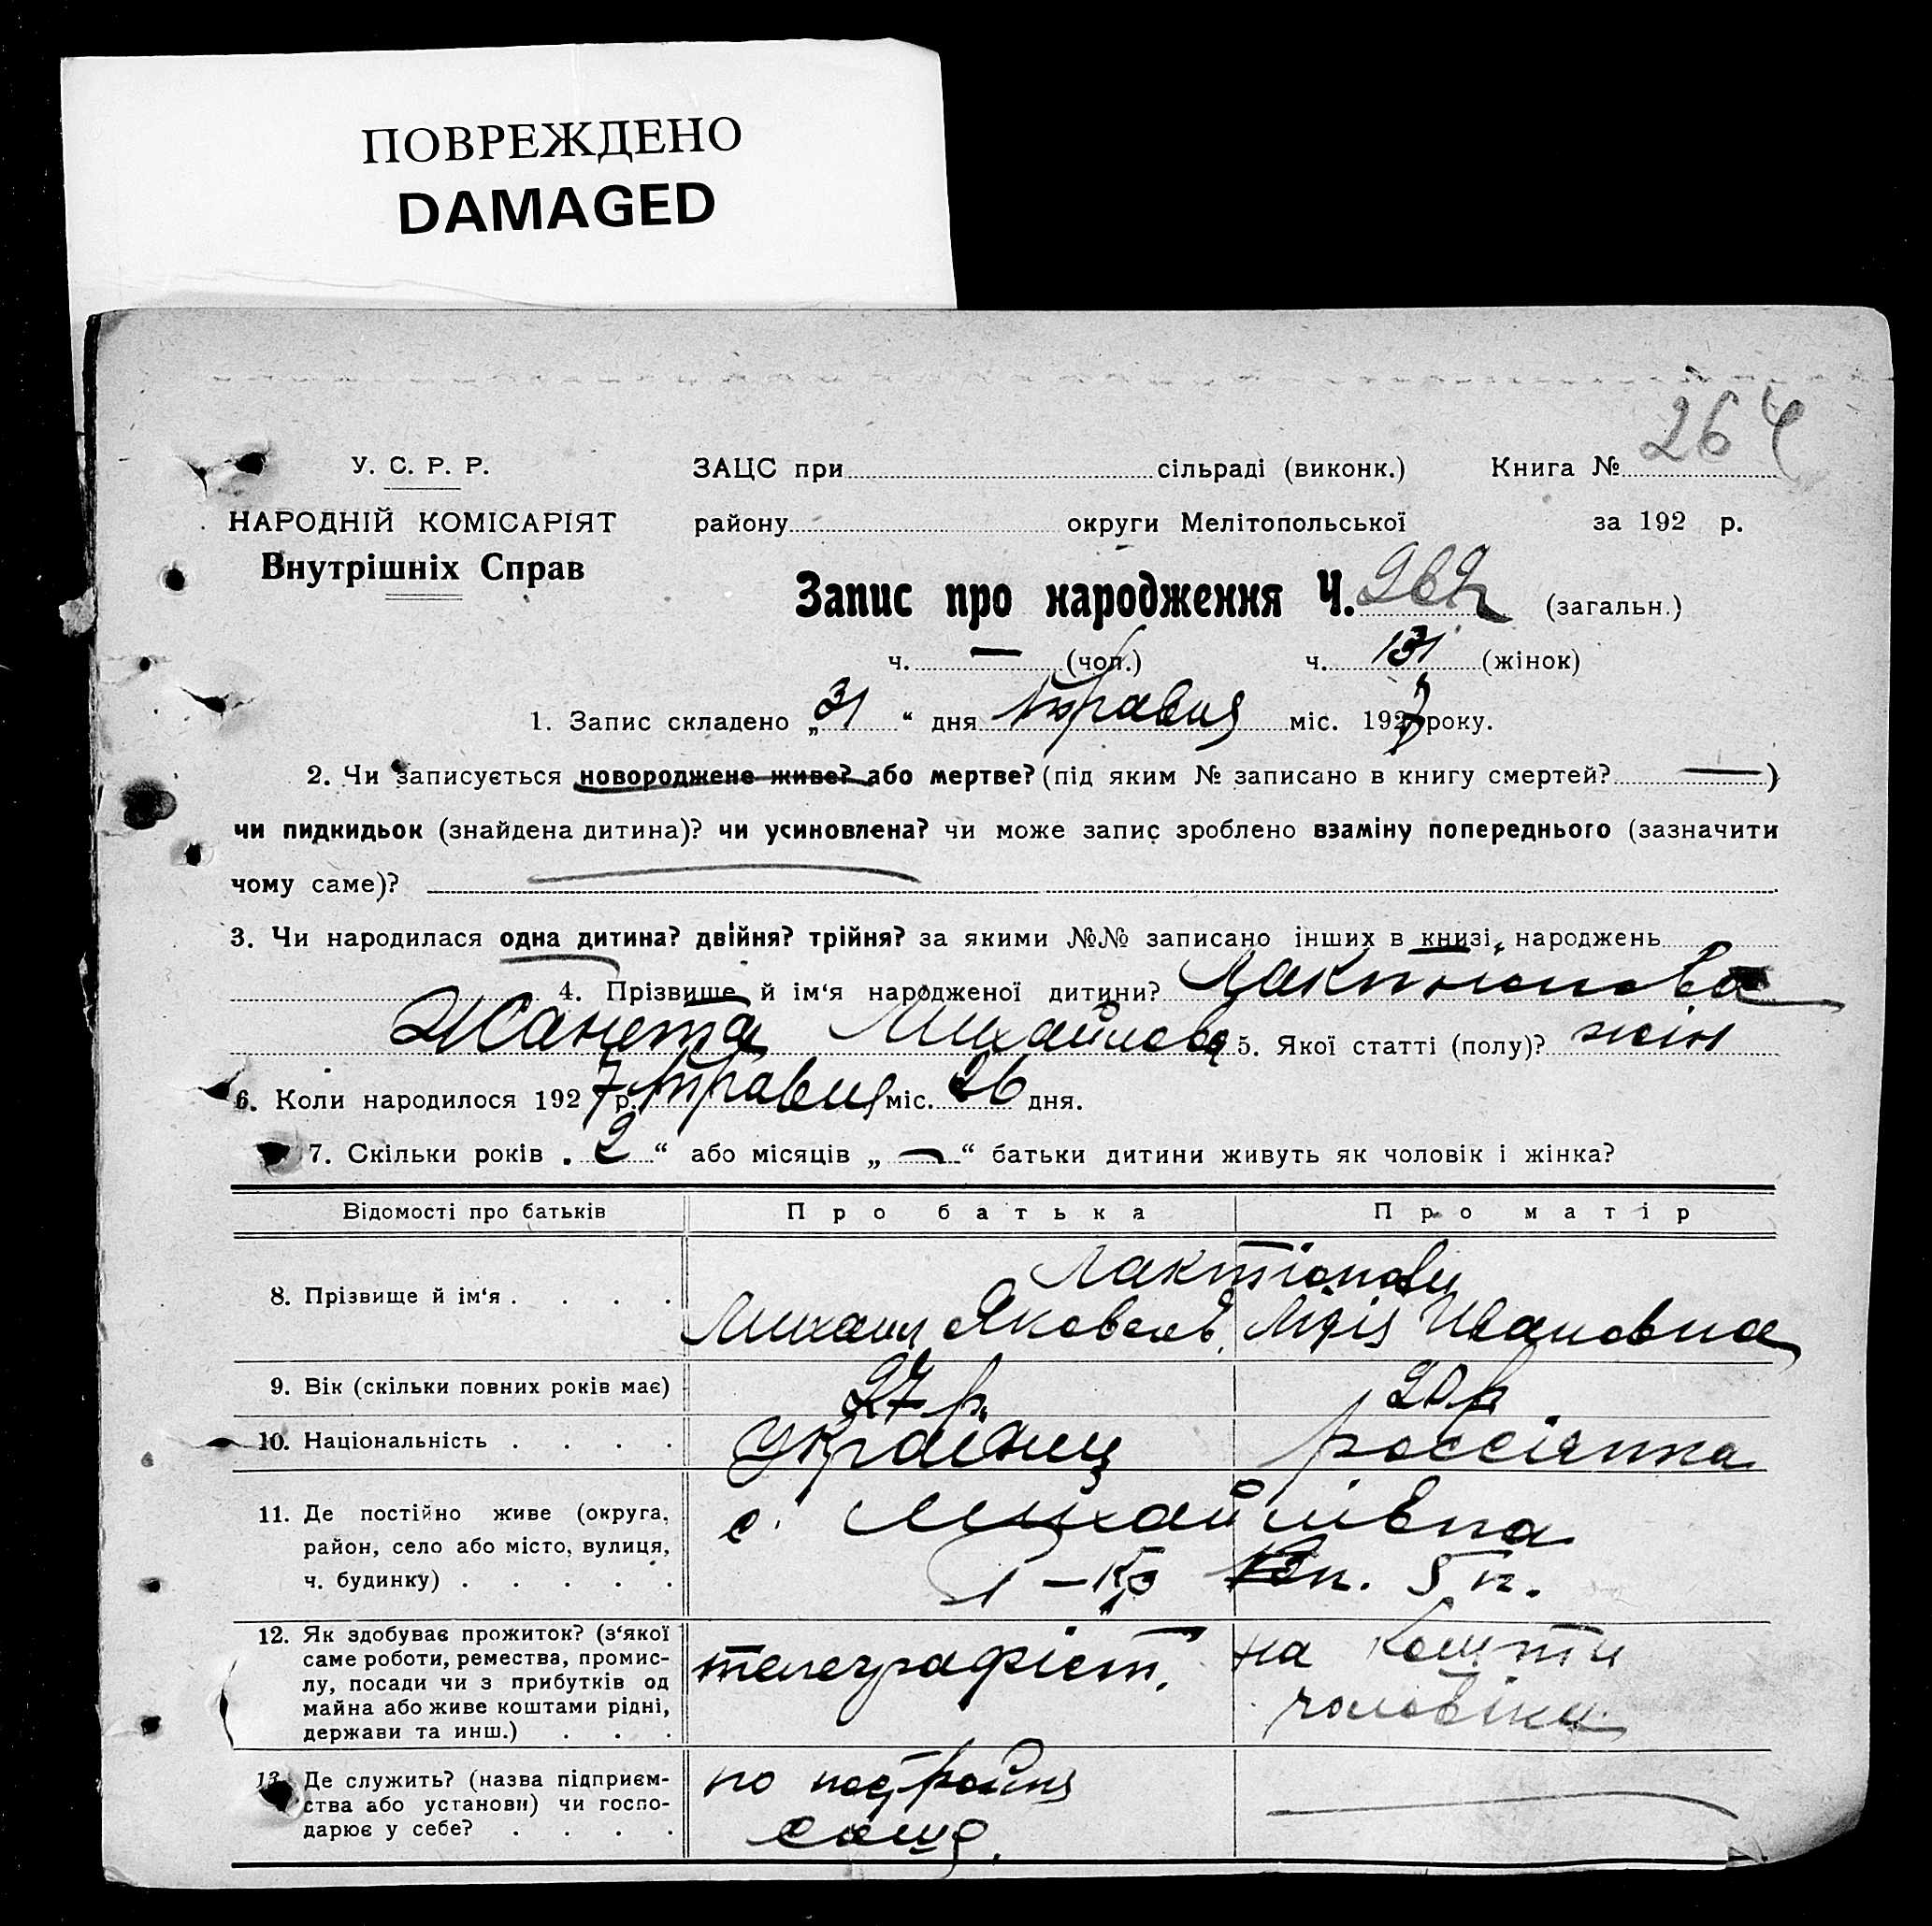 ПОВРЕЖДЕНО
DAMAGED
264
У. С. Р. Р. ЗАЦС при сільраді (виконк.) Книга №
НАРОДНІЙ КОМІСАРІЯТ району округи Мелітопольської за 192 р.
Внутрішніх Справ
Запис про народження Ч. 262 (загальн.)
ч. — (чол.) ч. 131 (жінок)
1. Запис складено „31“ дня травня міс. 1927 року.
2. Чи записується новороджене живе? або мертве? (під яким № записано в книгу смертей? —)
чи пидкидьок (знайдена дитина)? чи усиновлена? чи може запис зроблено взаміну попереднього (зазначити
чому саме)?
3. Чи народилася одна дитина? двійня? трійня? за якими №№ записано інших в книзі народжень
4. Прізвище й ім‘я народженої дитини? Лактионова
Жанета Михайлова 5. Якої статті (полу)? жін
6. Коли народилося 1927 р. травня міс. 26 дня.
7. Скільки років „2“ або місяців „—“ батьки дитини живуть як чоловік і жінка?
Відомості про батьків Про батька Про матір
Лактіонови
8. Прізвище й ім‘я . . . . Михаил Яковлев, Лідія Ивановна
9. Вік (скільки повних років має) 27 р. 20 р
10. Національність . . . . Українец россіянка
11. Де постійно живе (округа, с. Михайлівка
район, село або місто, вулиця,
ч. будинку) . . . . . 1 – п. 5 п.
12. Як здобуває прожиток? (з‘якої
саме роботи, ремества, промис-
лу, посади чи з прибутків од
майна або живе коштами рідні,
держави та инш.) . . .
телеграфіст. на кошти
чоловіка
13. Де служить? (назва підприєм-
ства або установи) чи госпо-
дарює у себе? . . . .
по